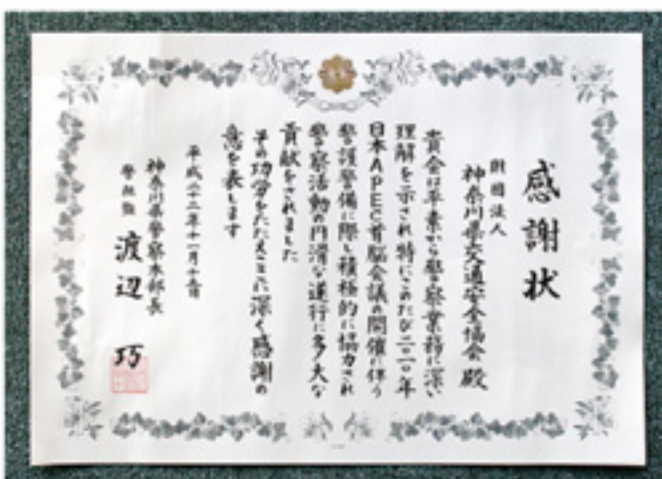 感謝状
財団法人
神奈川県交通安全協会 殿
貴会は平素から警察業務に深い
理解を示され特にこのたび二〇一〇年
日本APEC首脳会議の開催に伴う
警護警備に際し積極的に協力され
警察活動の円滑な遂行に多大な
貢献をされました
その功労をたたえここに深く感謝の
意を表します
平成二十二年十一月十五日
神奈川県警察本部長
警視監 渡辺 巧